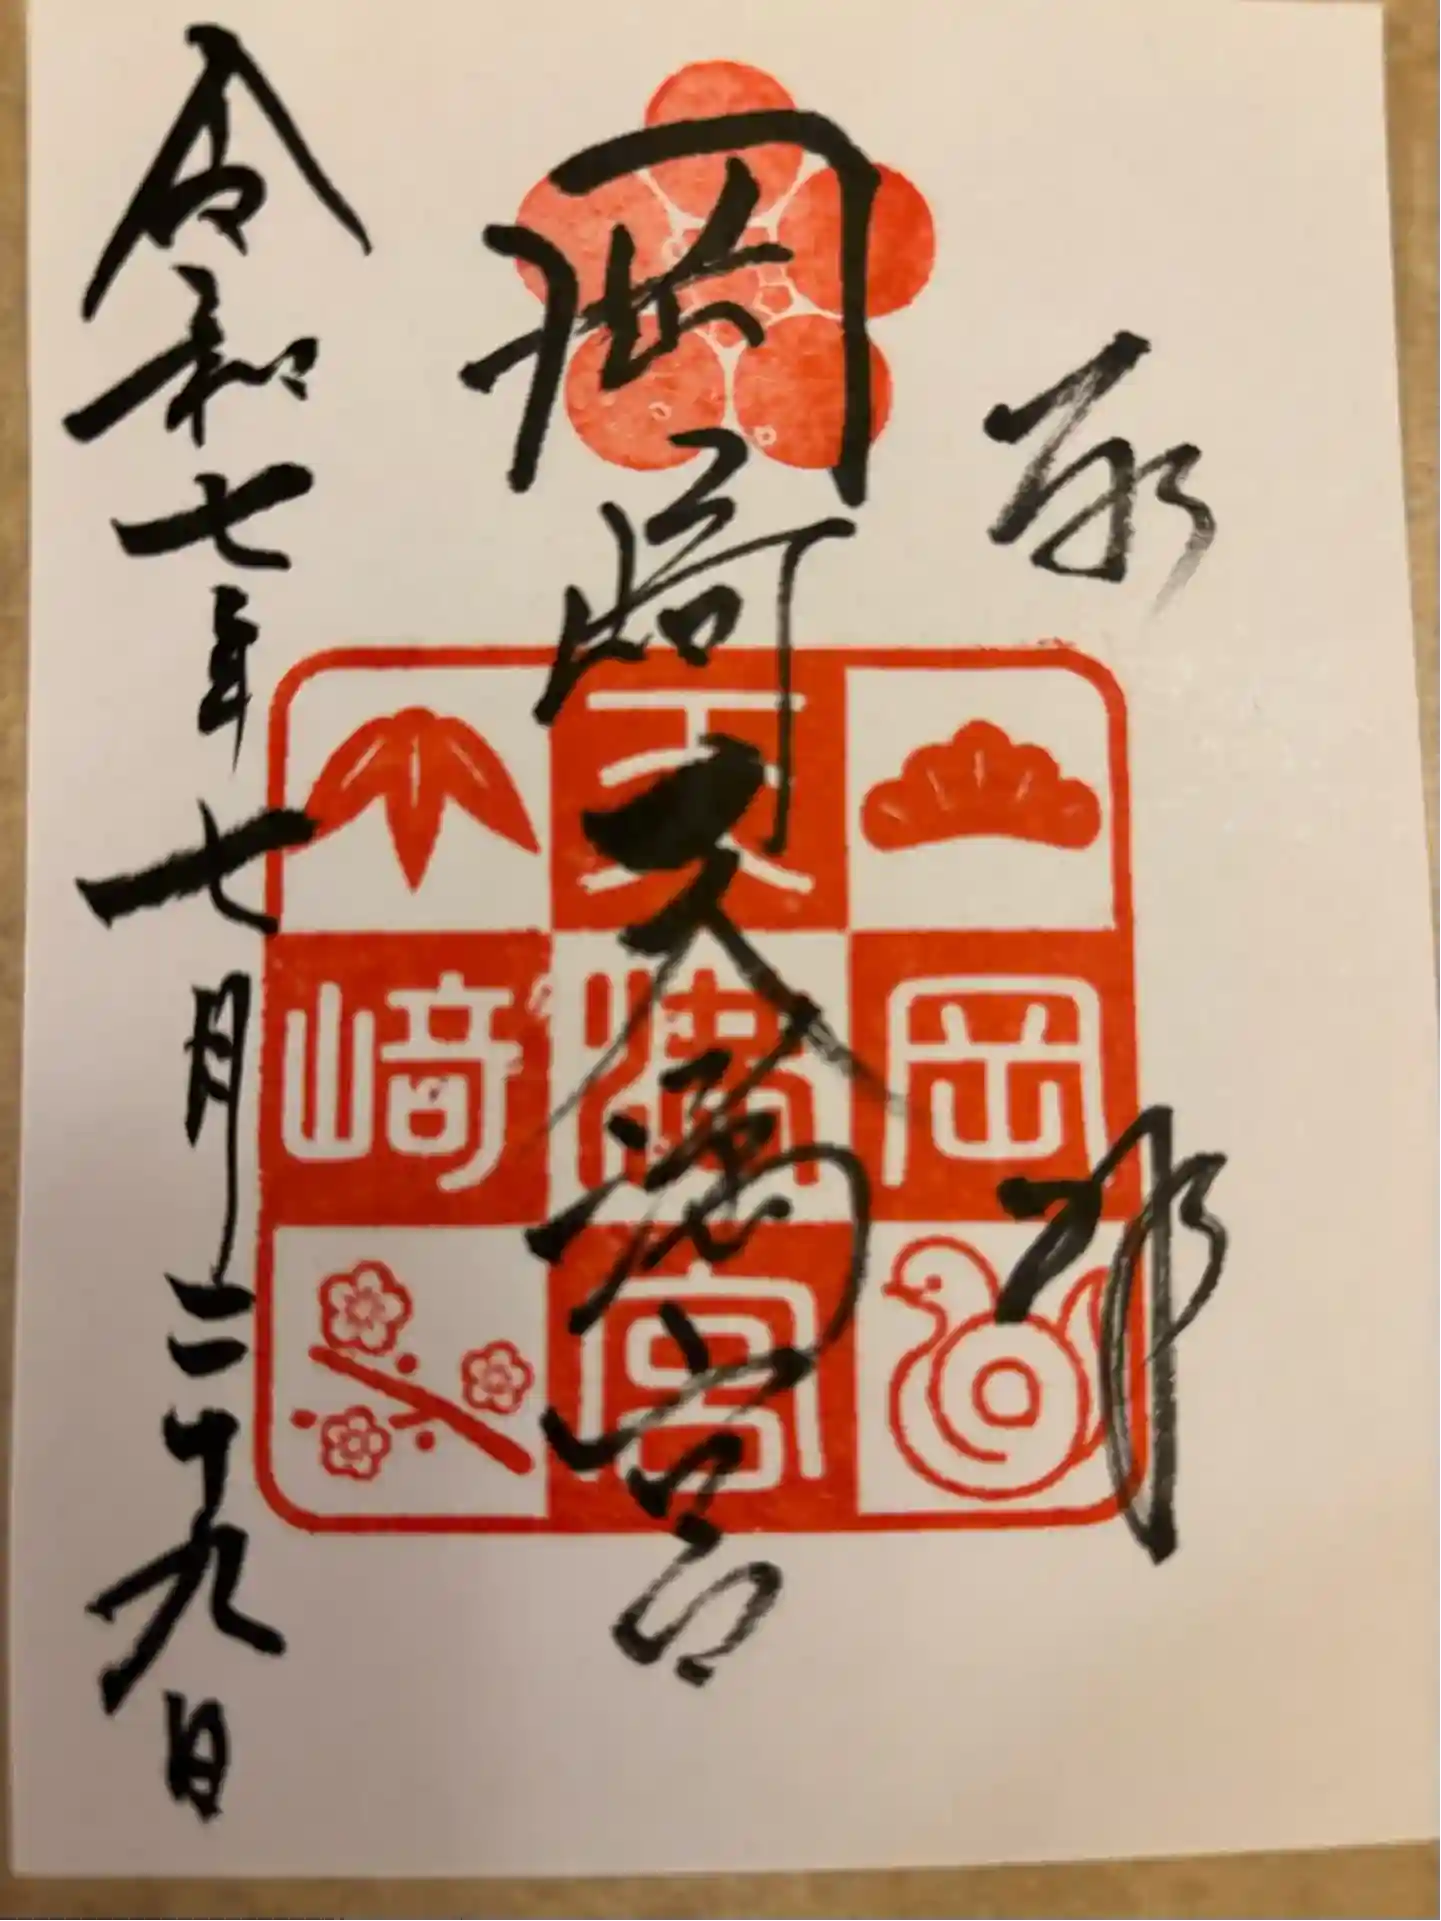 奉
拝
岡﨑天満宮
令和七年七月二十九日
天
岡
満
﨑
宮